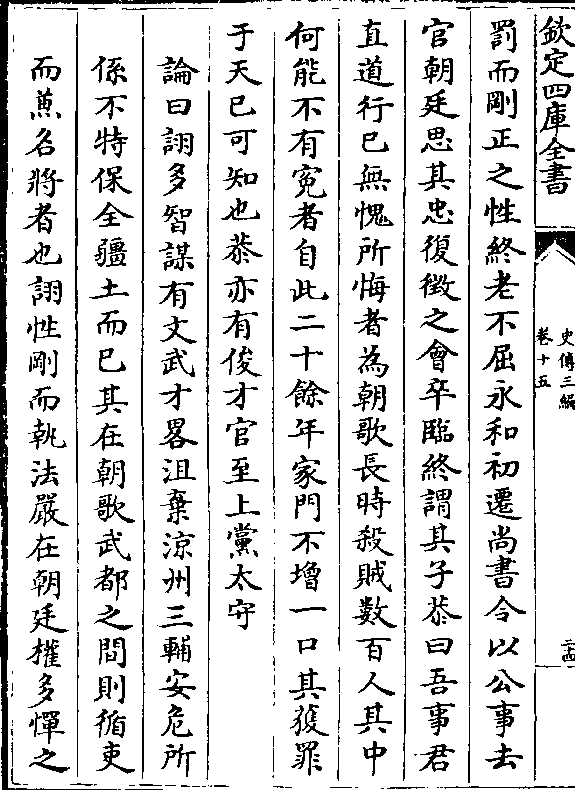 欽定四庫全書
史傳三編
卷十五
二十四
罰而剛正之性終老不屈永和初遷尚書令以公事去
官朝廷思其忠復徵之會卒臨終謂其子恭曰吾事君
直道行已無愧所悔者為朝歌長時殺賊数百人其中
何能不有寃者自此二十餘年家門不增一口其獲罪
于天已可知也恭亦有俊才官至上黨太守
論曰詡多智謀有文武才畧沮棄涼州三輔安危所
係不特保全疆土而已其在朝歌武都之間則循吏
而蕉名將者也詡性剛而執法嚴在朝廷權多憚之